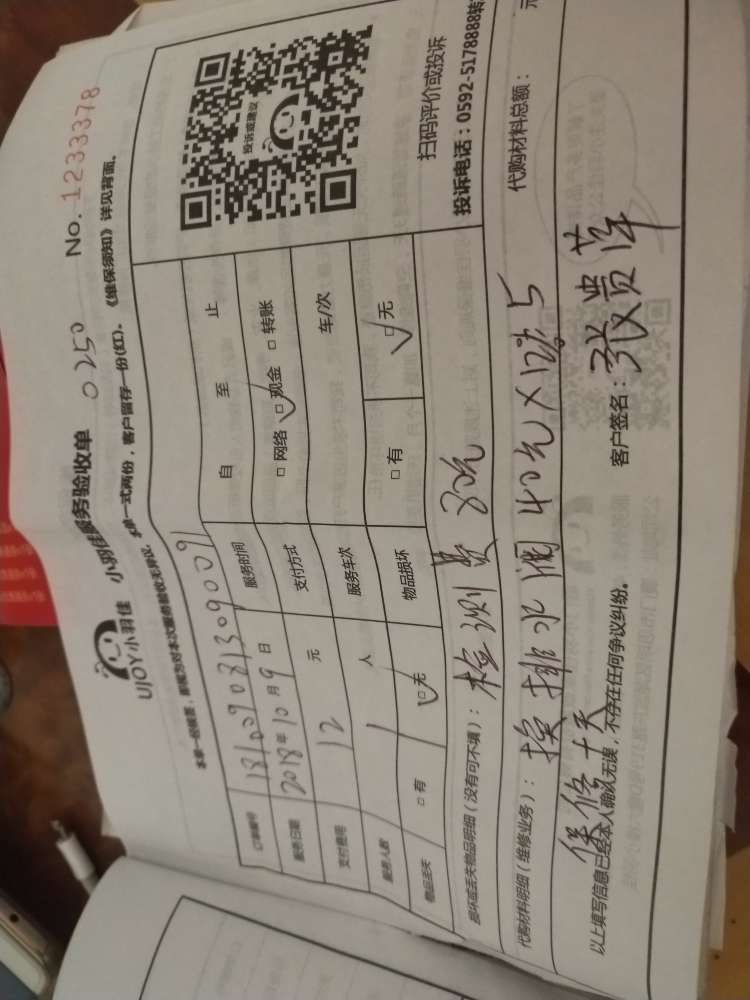 UJOY小羽佳 小羽佳服务验收单 0250 No. 1233378
本单一经核签，即视为对本次服务验收无异议。本单一式两份，客户留存一份(红)。《维保须知》详见背面。
订单编号 181009081309009 服务时间 自 至 止
服务日期 2018年10月9日 支付方式 □ 网络 □ 现金 □ 转账
支付费用 12 元 服务车次 车/次
服务人数 1 人 物品损坏 □ 有 □ 无
物品丢失 □ 有 □ 无
投诉或建议
扫码评价或投诉
投诉电话：0592-5178888转
损坏或丢失物品明细（没有可不填）： 检测费 30元
代购材料明细（维修业务）： 换排水阀 40元X 5 代购材料总额： 元
保修十天
以上填写信息已经本人确认无误，不存在任何争议纠纷。 客户签名：张贵萍